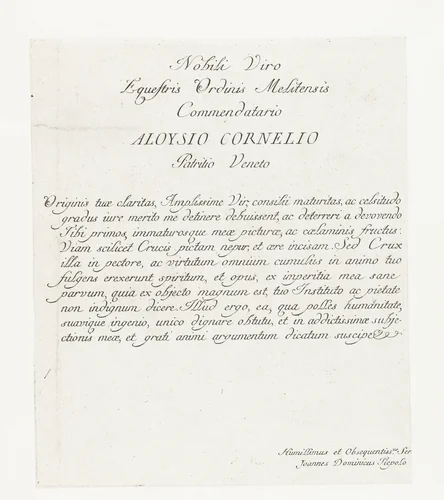 Nobili Viro
Equestris Ordinis Melitensis
Commendatario
ALOYSIO CORNELIO
Patritio Veneto
Originis tuæ claritas, Amplissime Vir, consilii maturitas, ac celsitudo
gradus iure merito me detinere debuissent, ac deterreri a devovendo
Tibi primos, immaturosque meæ picturæ, ac calaminis fructus.
Viam scilicet Crucis pictam nepur, et ære incisam. Sed Crux
illa in pectore, ac virtutum omnium cumulus in animo tuo
fulgens erexerunt spiritum, et opus, ex inperitia mea sane
parvum, quia ex objecto magnum est, tuo Instituto ac pietate
non indignum dicere. Illud ergo, ea, qua polles humanitate,
suavique ingenio, unico dignare obtutu, et in addictissimæ subje-
ctionis meæ, et grati animi argumentum dicatum suscipe
Humillimus et Obsequentiss.us Ser
Joannes Dominicus Tiepolo